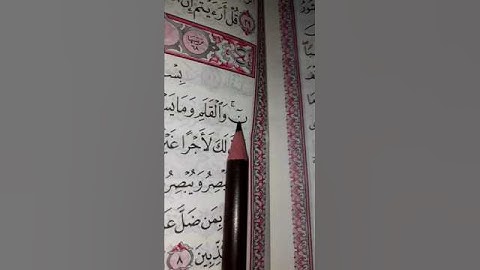 ٢٩ قُلْ أَرَءَيْتُمْ إِنْ
بِسْ
نٓ ۚ وَٱلْقَلَمِ وَمَا يَسْ
لَكَ لَأَجْرًا غَيْ
بْصِرُ وَيُبْصِرُ
بِمَن ضَلَّ عَ
ذِّبِينَ ٨